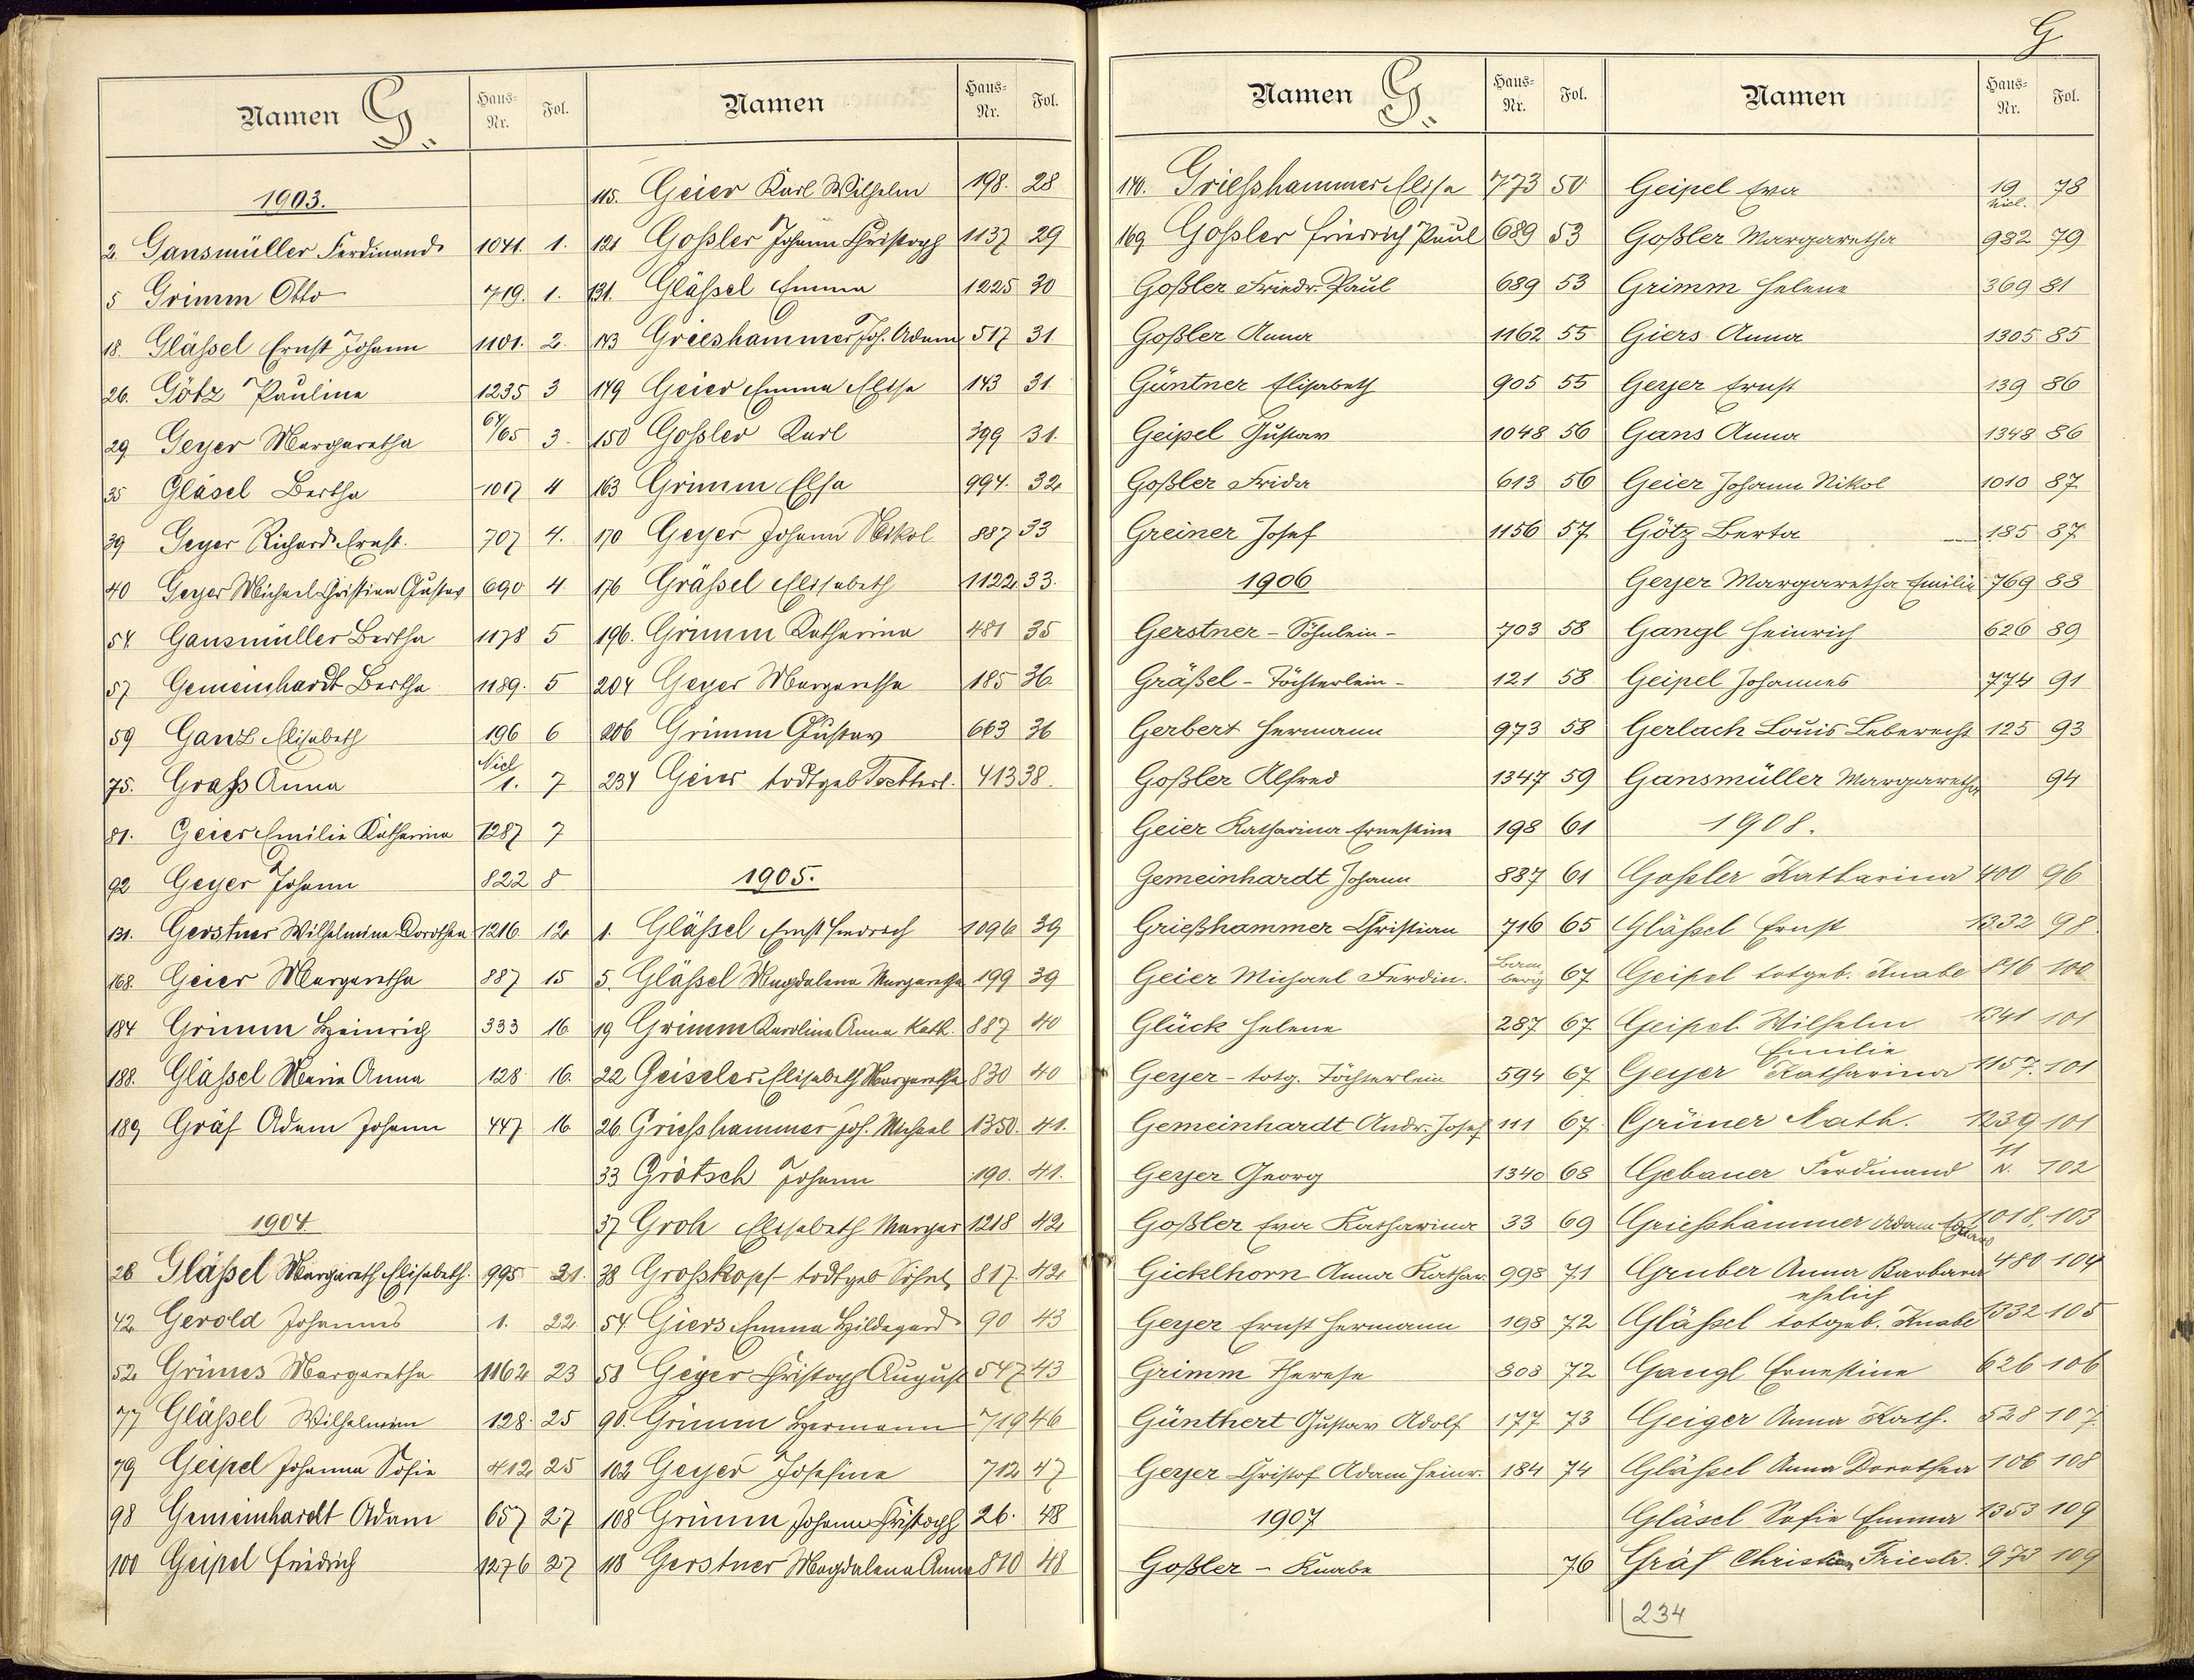 G
Namen G. Haus-Nr. Fol.
1903.
2. Gansmüller Ferdinand 1041. 1.
5 Grimm Otto 719. 1.
18. Gläßel Ernst Johann 1101. 2.
26. Götz Pauline 1235 3
29 Geyer Margaretha 64/65 3.
35 Gläsel Bertha 1017 4
39 Geyer Richard Ernst. 707 4.
40 Geyer Michael Christian Gustav 690 4.
54. Gansmüller Bertha 1178 5
57 Gemeinhardt Bertha 1189. 5
59 Ganz Elisabeth 196 6
75. Graß Anna Nicl 1. 7
81. Geier Emilie Katharina 1287 7
92 Geyer Johann 822 8
131. Gerstner Wilhelmine Dorothea 1216 12
168. Geier Margaretha 887 15
184 Grimm Heinrich 333 16
188. Gläßel Maria Anna 128 16.
189 Gräf Adam Johann 447 16
1904.
28 Gläßel Margareth Elisabeth. 995 21.
42 Gerold Johannes 1. 22
52 Grünes Margaretha 1162 23
77 Gläßel Wilhelmine 128. 25
79 Geipel Johanna Sofie 412 25
98 Gemeinhardt Adam 657 27
100 Geipel Friedrich 1276 27
Namen Haus-Nr. Fol.
115. Geier Karl Wilhelm 198. 28
121 Goßler Johann Christoph 1137 29
131. Gläßel Emma 1225 30
143 Grieshammer Joh. Adam 517 31
149 Geier Emma Elise 143 31.
150 Goßler Karl 399 31.
163 Grimm Elsa 994. 32
170 Geyer Johann Nikol 887 33
176 Gräßel Elisabeth 1122 33.
196. Grimm Katharina 481 35
204 Geyer Margaretha 185 36
206 Grimm Gustav 663 36
234 Geier todtgeb Tochterl. 413 38.
1905.
1. Gläßel Ernst Friedrich 1096 39
5. Gläßel Magdalena Margaretha 199 39
19 Grimm Karoline Anna Kath. 887 40
22 Geiseler Elisabeth Margaretha 830 40
26 Grießhammer Joh. Michael 1350. 41.
33 Grötsch Johann 190. 41.
37 Groh Elisabeth Margar 1218 42
38 Großkopf todtgeb Söhnl 817 42
54 Giers Emma Hildegard 90 43
58 Geyer Christoph August 547 43
90. Grimm Hermann 719 46
102 Geyer Josefine 712 47
108 Grimm Johann Christoph 26. 48
118 Gerstner Magdalena Anna 810 48
Namen G. Haus-Nr. Fol.
140. Grießhammer Elise 773 50
169 Goßler Friedrich Paul 689 53
Goßler Friedr. Paul 689 53
Goßler Anna 1162 55
Güntner Elisabeth 905 55
Geipel Gustav 1048 56
Goßler Frida 613 56
Greiner Josef 1156 57
1906
Gerstner - Söhnlein - 703 58
Gräßel - Töchterlein - 121 58
Gerbert Hermann 973 58
Goßler Alfred 1347 59
Geier Katharina Ernestine 198 61
Gemeinhardt Johann 887 61
Grießhammer Christian 716 65
Geier Michael Ferdin. Bamberg 67
Glück Helene 287 67
Geyer - totg. Töchterlein 594 67
Gemeinhardt Andr. Josef 111 67
Geyer Georg 1340 68
Goßler Eva Katharina 33 69
Gicklhorn Anna Kathar. 998 71
Geyer Ernst Hermann 198 72
Grimm Therese 303 72
Günthert Gustav Adolf 177 73
Geyer Christof Adam Heinr. 184 74
1907
Goßler - Knabe 76
Namen Haus-Nr. Fol.
Geipel Eva 19 Nicl. 78
Goßler Margaretha 982 79
Grimm Helene 369 81
Giers Anna 1305 85
Geyer Ernst 139 86
Gans Anna 1348 86
Geier Johann Nikol 1010 87
Götz Berta 185 87
Geyer Margaretha Emilie 769 88
Gangl Heinrich 626 89
Geipel Johannes 774 91
Gerlach Louis Leberecht 125 93
Gansmüller Margaretha 94
1908.
Goßler Katharina 400 96
Gläßel Ernst 1332 98.
Geipel totgeb. Knabe 816 100
Geipel Wilhelm 1341 101
Geyer Emilie Katharina 1157. 101
Grüner Kath. 1239 101
Gebauer Ferdinand 11 N. 102
Grießhammer Adam Eduard 1018. 103
Gruber Anna Barbara 480 104
Gläßel ehelich totgeb. Knabe 1332 105
Gangl Ernestine 626 106
Geiger Anna Kath. 528 107
Gläßel Anna Dorothea 106 108
Gläsel Sofie Emma 1353 109
Gräf Christian Friedr. 973 109
234